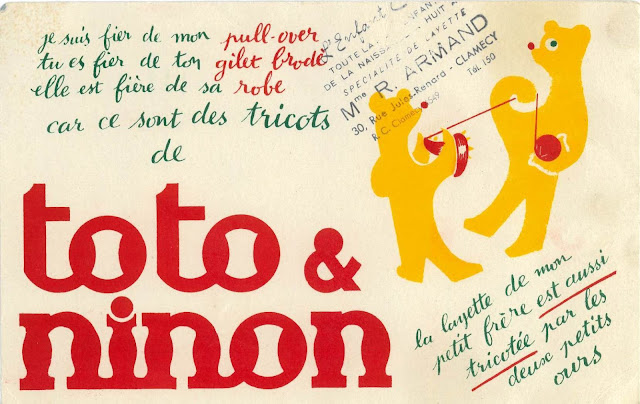 je suis fier de mon pull-over
tu es fier de ton gilet brodé
elle est fière de sa robe
car ce sont des tricots
de
toto &
ninon
L'Enfant
TOUTE LA
DE LA NAISSANCE HUIT A
SPECIALITE DE LAYETTE
Mme R. ARMAND
30, Rue Jules-Renard - CLAMECY
R. C. Clamecy Tél. 150
la layette de mon
petit frère est aussi
tricotée par les
deux petits
ours